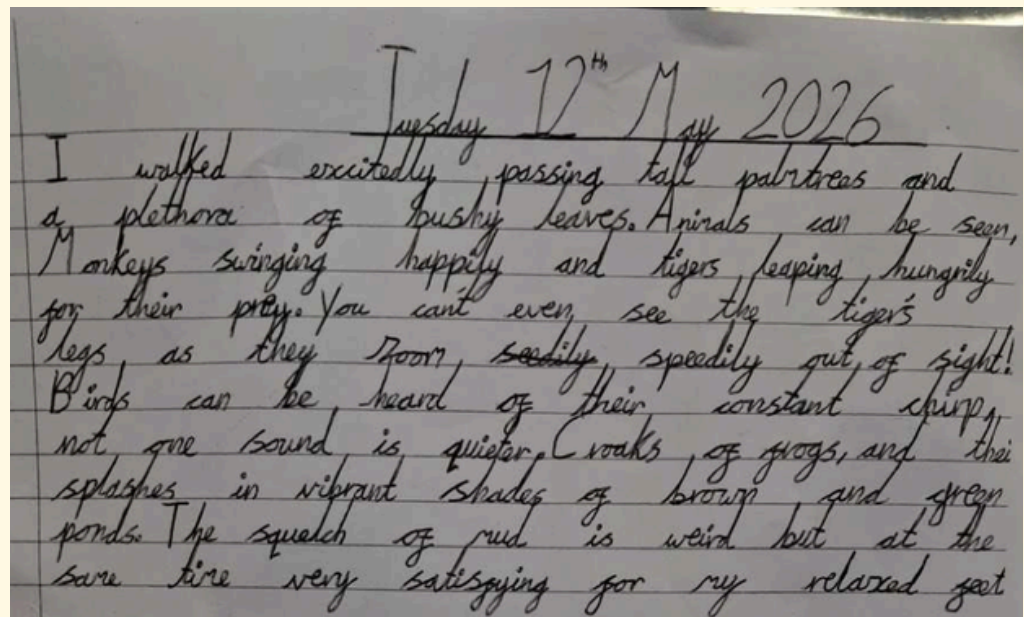 Tuesday 12th May 2026
I walked excitedly, passing tall palmtrees and
a plethora of bushy leaves. Animals can be seen,
Monkeys swinging happily and tigers leaping hungrily
for their prey. You can't even see the tiger's
legs, as they zoom, seedily, speedily out of sight!
Birds can be heard of their constant chirp,
not one sound is quieter. Croaks of frogs, and thei
splashes in vibrant shades of brown and green
ponds. The squelch of mud is weird but at the
same time very satisfying for my relaxed feet